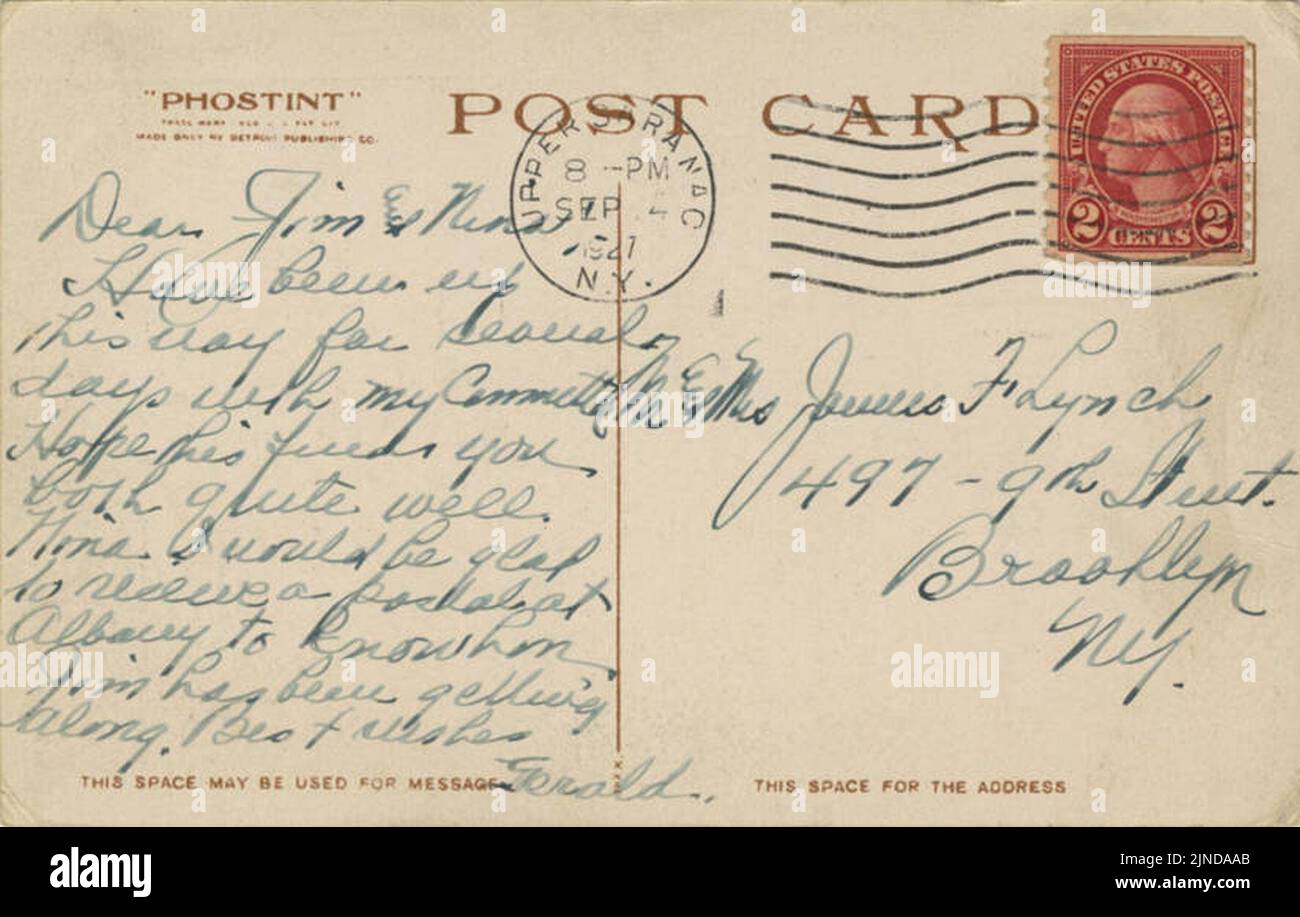 "PHOSTINT"
MADE ONLY BY DETROIT PUBLISHING CO.
POST CARD
UPPER SARANAC
8 -PM
SEP 4
1927
N.Y.
UNITED STATES POSTAGE
2 CENTS 2
Dear Jim & Nina
Have been up
this way for several
days with my Committee
Hope this finds you
both quite well.
Nina I would be glad
to receive a postal at
Albany to know how
Jim has been getting
along. Best wishes
Gerald.
THIS SPACE MAY BE USED FOR MESSAGE
M & Mrs James F Lynch
497 - 9th Street.
Brooklyn
NY.
THIS SPACE FOR THE ADDRESS
alamy
alamy
Image ID: 2JNDAAB
www.alamy.com